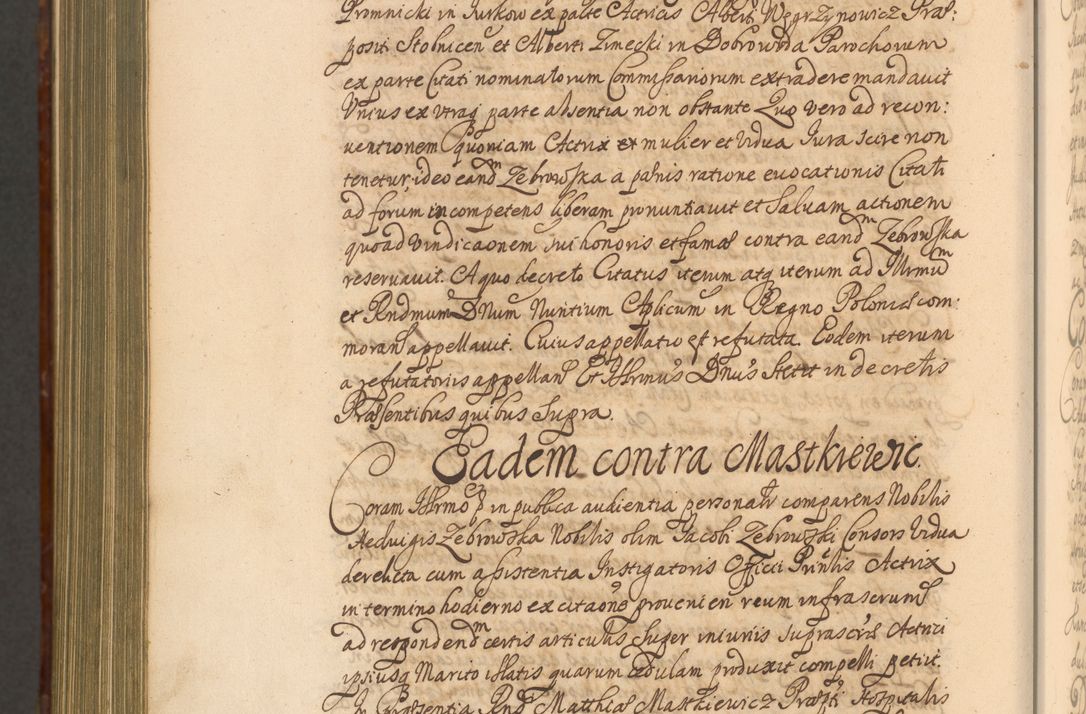 Promnicki in Jurkow ex parte Actricis Alberti Węgrzynowicz Præ:
positi Stolnicen et Alberti Zmecki in Dobrowoda Parochorum
ex parte Citati nominatorum Commissariorum extradere mandavit
Unius ex utraq parte absentia non obstante Quo vero ad recon:
ventionem quoniam Actrix et mulier et vidua Iura scire non
tenetur, ideo eandm Zebrowska a pœnis ratione evocationis Citati
ad forum incompetens liberam pronuntiavit et Salvam actionem
quoad vindicaonem sui honoris et famæ contra eandm Zebrowska
reservavit. A quo decreto Citatus iterum atq iterum ad Illrmum
et Rndmum DNum Nuntium Aplicum in Regno Poloniæ com:
moran appellavit. Cuius appellatio est refutata. Eodem iterum
a refutatoriis appellan Et Illrmus Dnus stetit in decretis
Præsentibus quibus supra.
Eadem contra Mastkiewic.
Coram Illrmo p in publica audientia personali comparens Nobilis
Hedvigis Zebrowska Nobilis olim Jacobi Zebrowski Consors vidua
derelicta cum assistentia Instigatoris Officii Prntis Actrix
in termino hodierno ex citaone provenien reum infrascrum
ad respondendm certis articulis super iniuriis suprascriæ Actrici
ipsiusq Marito illatis quarum cedulam produxit compelli petiit.
In Præsentia Rnd Matthiæ Mastkiewicz Præpti Hospitalis